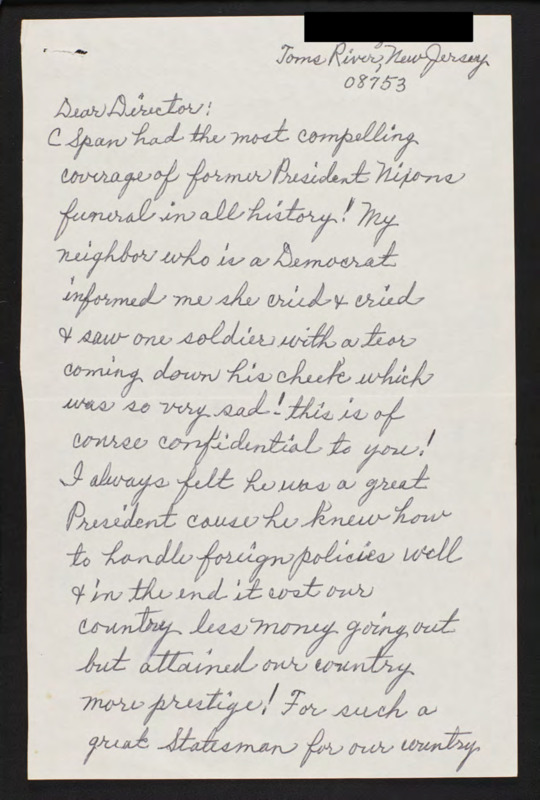 Toms River, New Jersey
08753
Dear Director!
C Span had the most compelling
coverage of former President Nixons
funeral in all history! My
neighbor who is a Democrat
informed me she cried & cried
& saw one soldier with a tear
coming down his cheek which
was so very sad! this is of
course confidential to you!
I always felt he was a great
President cause he knew how
to handle foreign policies well
& in the end it cost our
country less money going out
but attained our country
more prestige! For such a
great Statesman for our country